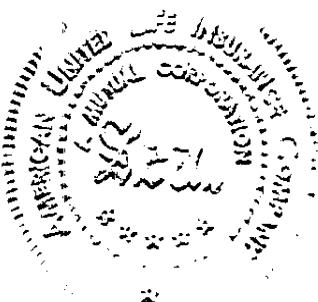 AMERICAN UNITED LIFE INSURANCE COMPANY
A MUTUAL CORPORATION
SEAL